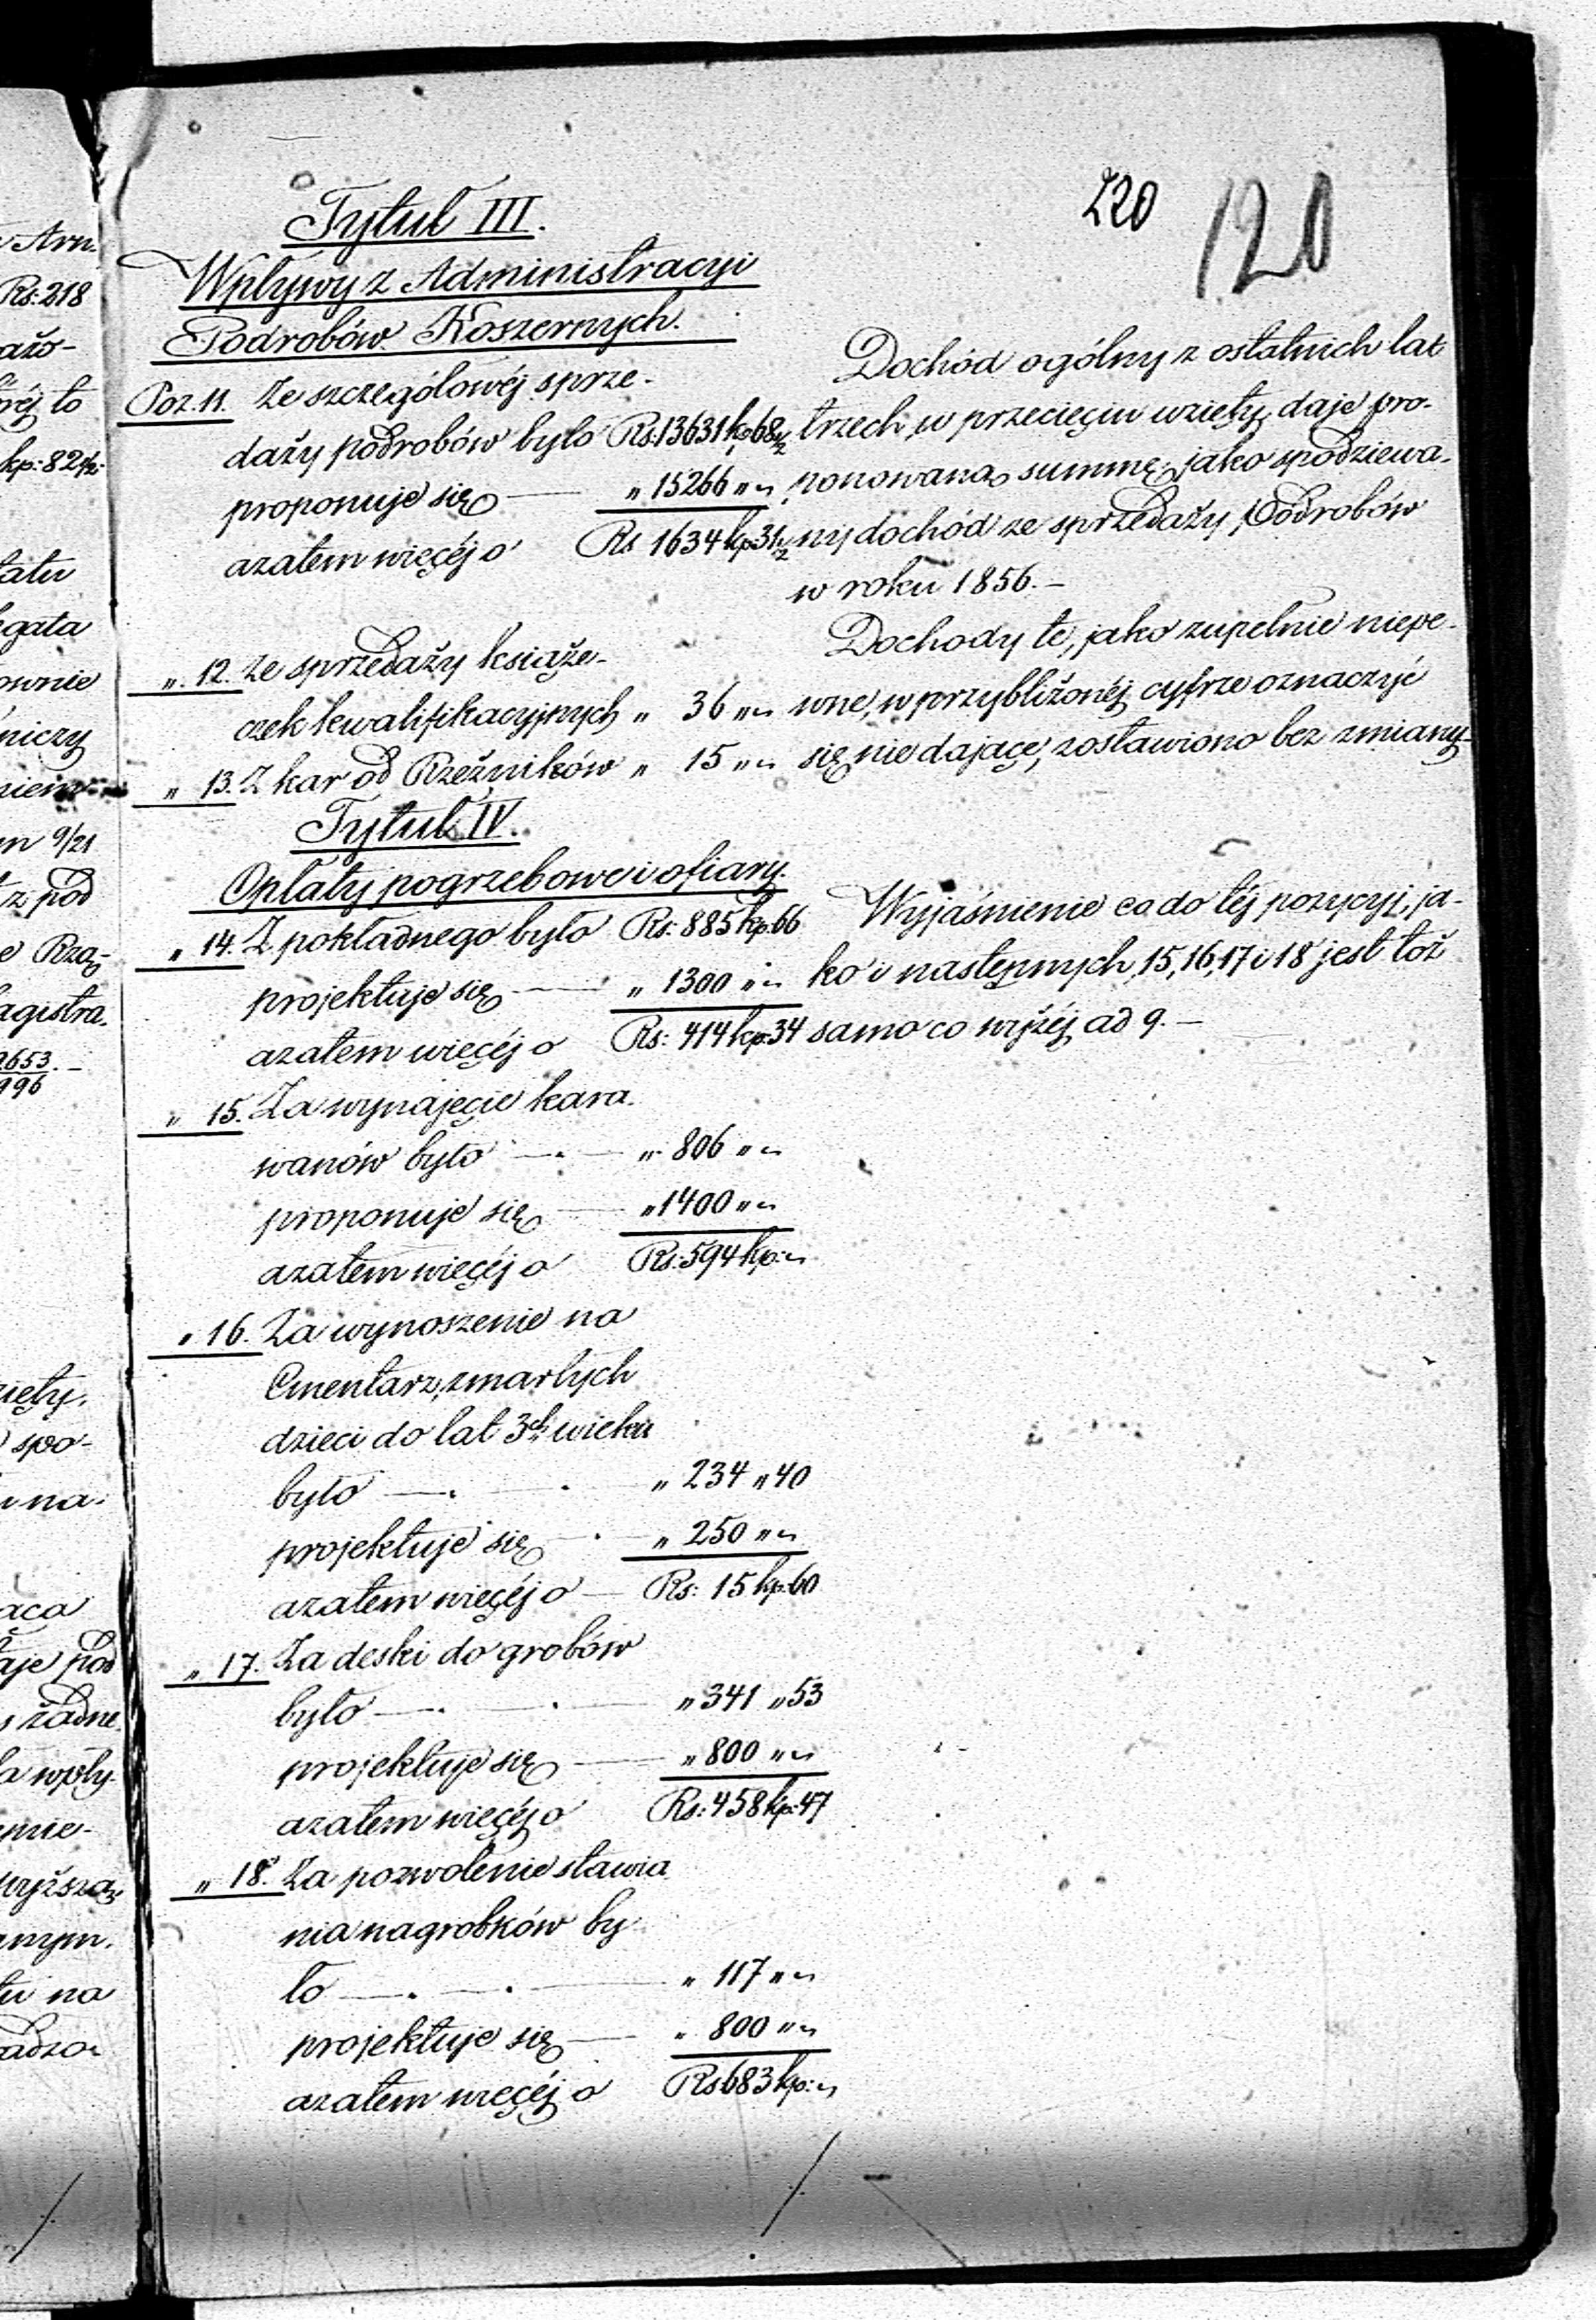 220 120
Tytuł III.
Wpływy z Administracyi
Podrobów Koszernych.
Poz. 11. Ze szczegółowéj sprze-
daży podrobów było Rs: 13631 kp. 68 1/2
proponuje się — „ 15266 „ „
azatem więcéj o Rs 1634 kp. 31 1/2
Dochód ogólny z ostatnich lat
trzech, w przecięciu wzięty, daje pro-
ponowaną summę, jako spodziewa-
ny dochód ze sprzedaży Podrobów
w roku 1856. —
„ 12. Ze sprzedaży książe-
czek kwalifikacyjnych „ 36 „ „
„ 13. Z kar od Rzeźników „ 15 „ „
Dochody te, jako zupełnie niepe-
wne, w przybliżonéj cyfrze oznaczyć
się nie dające, zostawiono bez zmiany
Tytuł IV.
Opłaty pogrzebowe i ofiary.
„ 14. Z pokładnego było Rs: 885 kp. 66
projektuje się — „ 1300 „ „
azatem więcéj o Rs: 414 kp. 34
Wyjaśnienie co do téj pozycyi, ja-
ko i następnych, 15, 16, 17 i 18 jest toż
samo co wyżéj ad 9. —
„ 15. Za wynajęcie kara-
wanów było — „ 806 „ „
proponuje się — „ 1400 „ „
azatem więcéj o Rs: 594 kp: „
„ 16. Za wynoszenie na
Cmentarz, zmarłych
dzieci do lat 3ch wieku
było — „ 234 „ 40
projektuje się — „ 250 „ „
azatem więcéj o — Rs: 15 kp. 60
„ 17. Za deski do grobów
było — „ 341 „ 53
projektuje się — „ 800 „ „
azatem więcéj o Rs: 458 kp: 47
„ 18. Za pozwolenie stawia
nia nagrobków by-
ło — „ 117 „ „
projektuje się — „ 800 „ „
azatem więcéj o Rs 683 kp: „